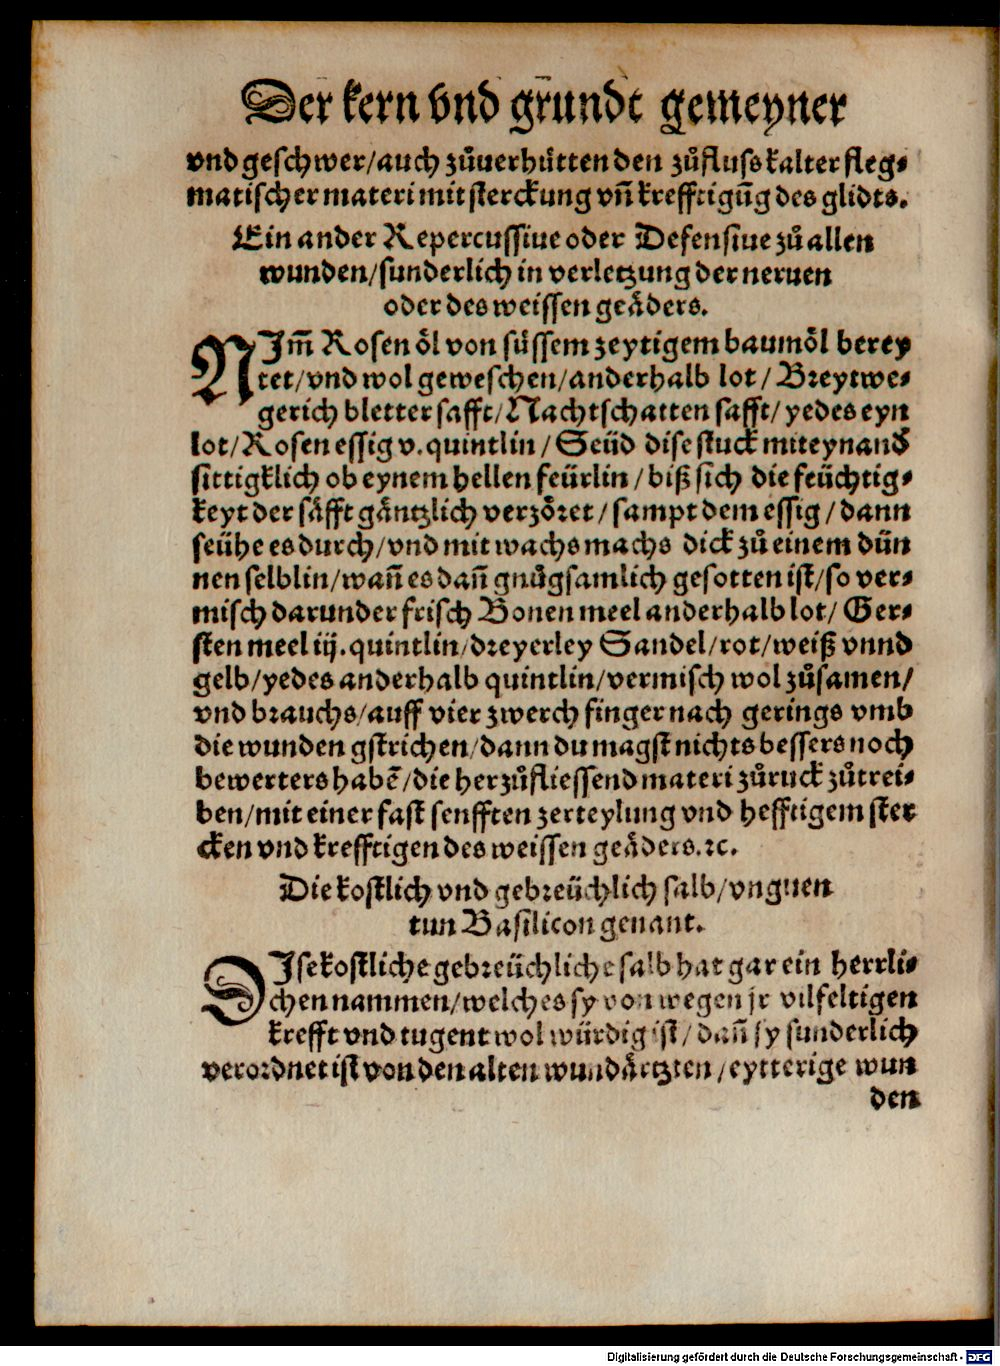 Der kern vnd grundt gemeyner
vnd geschwer/auch zůuerhütten den zůfluss kalter fleg⸗
matischer materi mit sterckung vñ krefftigūg des glidts.
Ein ander Repercussiue oder Defensiue zů allen
wunden/sunderlich in verletzung der neruen
oder des weissen geäders.
NIm̄ Rosen öl von süssem zeytigem baumöl berey
tet/vnd wol geweschen/anderhalb lot/ Breytwe⸗
gerich bletter safft/Nachtschatten safft/ yedes eyn
lot/Rosen essig v.quintlin/ Seüd dise stuck miteynand
sittigklich ob eynem hellen feürlin/biß sich die feüchtig⸗
keyt der säfft gäntzlich verzöret/sampt dem essig/dann
seühe es durch/vnd mit wachs machs dick zů einem dün
nen selblin/wañ es dañ gnůgsamlich gesotten ist/so ver⸗
misch darunder frisch Bonen meel anderhalb lot/ Ger⸗
sten meel iij.quintlin/dreyerley Sandel/rot/weiß vnnd
gelb/yedes anderhalb quintlin/vermisch wol zůsamen/
vnd brauchs/auff vier zwerch finger nach gerings vmb
die wunden gstrichen/dann du magst nichts bessers noch
bewerters habē/die herzůfliessend materi zůruck zůtrei⸗
ben/mit einer fast senfften zerteylung vnd hefftigem ster
cken vnd krefftigen des weissen geäders.ꝛc.
Die kostlich vnd gebreüchlich salb/vnguen
tun Basilicon genant.
DIse kostliche gebreüchliche salb hat gar ein herrli⸗
chen nammen/welches sy von wegen jr vilfeltigen
krefft vnd tugent wol würdig ist/dañ sy sunderlich
verordnet ist von den alten wundärtzten/eytterige wun
den
Digitalisierung gefördert durch die Deutsche Forschungsgemeinschaft - DFG